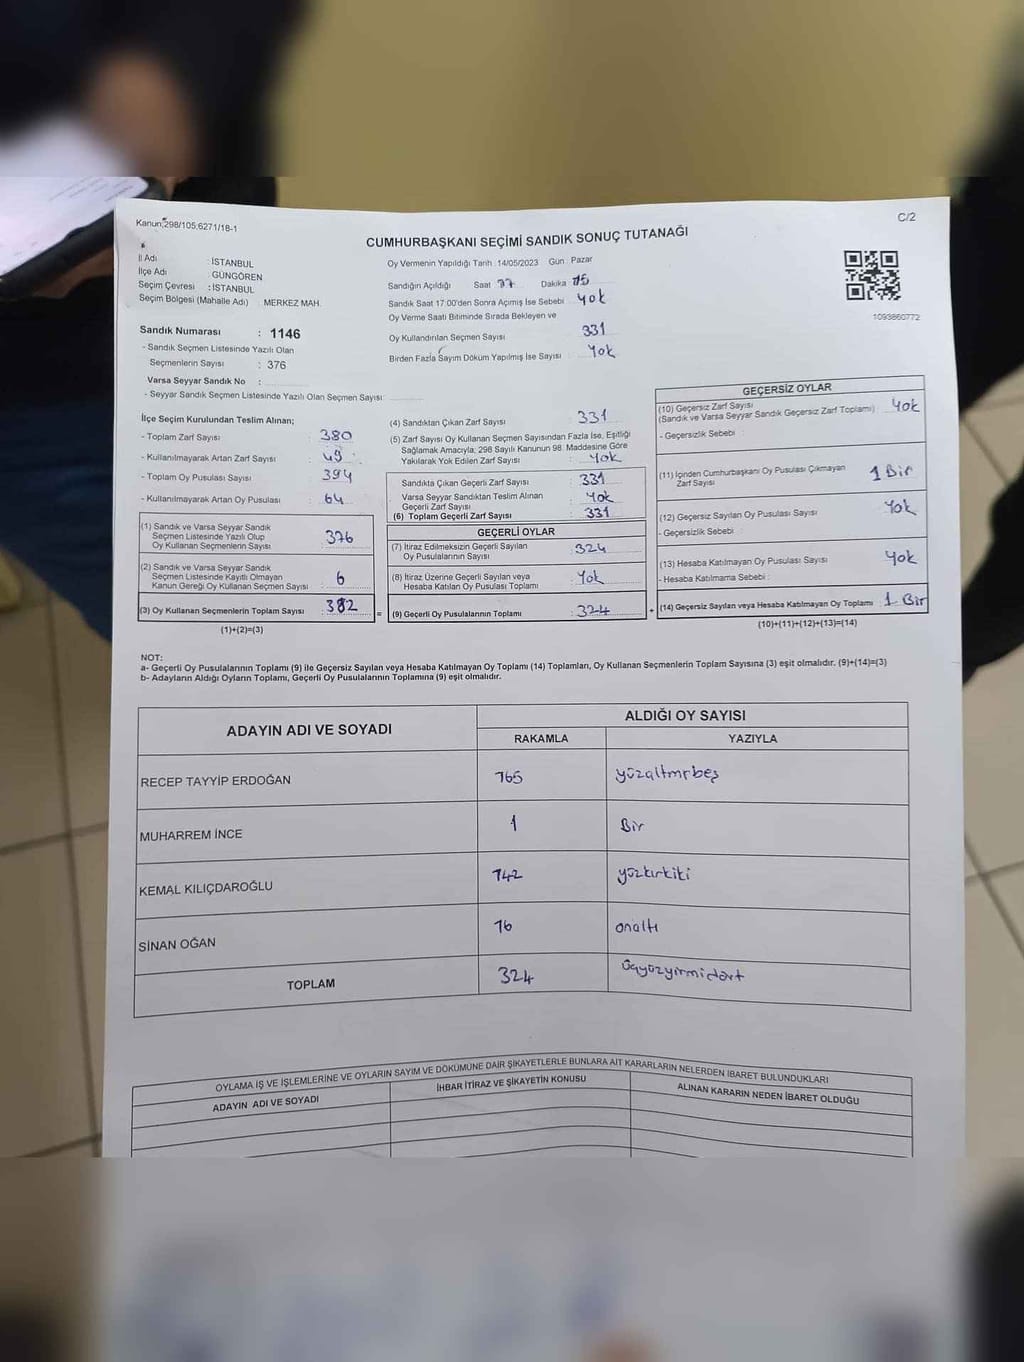 Kanun;298/105;6271/18-1
C/2
CUMHURBAŞKANI SEÇİMİ SANDIK SONUÇ TUTANAĞI
İl Adı : İSTANBUL
İlçe Adı : GÜNGÖREN
Seçim Çevresi : İSTANBUL
Seçim Bölgesi (Mahalle Adı) MERKEZ MAH.
Sandık Numarası : 1146
- Sandık Seçmen Listesinde Yazılı Olan
Seçmenlerin Sayısı : 376
Varsa Seyyar Sandık No :
- Seyyar Sandık Seçmen Listesinde Yazılı Olan Seçmen Sayısı:
Oy Vermenin Yapıldığı Tarih :14/05/2023 Gün : Pazar
Sandığın Açıldığı Saat 17 Dakika 15
Sandık Saat 17:00'den Sonra Açımış İse Sebebi Yok
Oy Verme Saati Bitiminde Sırada Bekleyen ve
Oy Kullandırılan Seçmen Sayısı 331
Birden Fazla Sayım Döküm Yapılmış İse Sayısı Yok
1093860772
İlçe Seçim Kurulundan Teslim Alınan;
- Toplam Zarf Sayısı : 380
- Kullanılmayarak Artan Zarf Sayısı : 49
- Toplam Oy Pusulası Sayısı : 394
- Kullanılmayarak Artan Oy Pusulası : 64
(1) Sandık ve Varsa Seyyar Sandık
Seçmen Listesinde Yazılı Olup
Oy Kullanan Seçmenlerin Sayısı 376
(2) Sandık ve Varsa Seyyar Sandık
Seçmen Listesinde Kayıtlı Olmayan
Kanun Gereği Oy Kullanan Seçmen Sayısı 6
(3) Oy Kullanan Seçmenlerin Toplam Sayısı : 382 =
(1)+(2)=(3)
(4) Sandıktan Çıkan Zarf Sayısı : 331
(5) Zarf Sayısı Oy Kullanan Seçmen Sayısından Fazla İse, Eşitliği
Sağlamak Amacıyla; 298 Sayılı Kanunun 98. Maddesine Göre
Yakılarak Yok Edilen Zarf Sayısı : Yok
Sandıkta Çıkan Geçerli Zarf Sayısı : 331
Varsa Seyyar Sandıktan Teslim Alınan
Geçerli Zarf Sayısı : Yok
(6) Toplam Geçerli Zarf Sayısı : 331
GEÇERLİ OYLAR
(7) İtiraz Edilmeksizin Geçerli Sayılan
Oy Pusulalarının Sayısı : 324
(8) İtiraz Üzerine Geçerli Sayılan veya
Hesaba Katılan Oy Pusulaları Toplamı : Yok
(9) Geçerli Oy Pusulalarının Toplamı : 324 +
GEÇERSİZ OYLAR
(10) Geçersiz Zarf Sayısı
(Sandık ve Varsa Seyyar Sandık Geçersiz Zarf Toplamı) Yok
- Geçersizlik Sebebi :
(11) İçinden Cumhurbaşkanı Oy Pusulası Çıkmayan
Zarf Sayısı 1 Bir
(12) Geçersiz Sayılan Oy Pusulası Sayısı Yok
- Geçersizlik Sebebi :
(13) Hesaba Katılmayan Oy Pusulası Sayısı Yok
- Hesaba Katılmama Sebebi :
(14) Geçersiz Sayılan veya Hesaba Katılmayan Oy Toplamı : 1 Bir
(10)+(11)+(12)+(13)=(14)
NOT:
a- Geçerli Oy Pusulalarının Toplamı (9) ile Geçersiz Sayılan veya Hesaba Katılmayan Oy Toplamı (14) Toplamları, Oy Kullanan Seçmenlerin Toplam Sayısına (3) eşit olmalıdır. (9)+(14)=(3)
b- Adayların Aldığı Oyların Toplamı, Geçerli Oy Pusulalarının Toplamına (9) eşit olmalıdır.
ADAYIN ADI VE SOYADI
ALDIĞI OY SAYISI
RAKAMLA YAZIYLA
RECEP TAYYİP ERDOĞAN 165 yüzaltmrbeş
MUHARREM İNCE 1 Bir
KEMAL KILIÇDAROĞLU 142 yüzkırkiki
SİNAN OĞAN 16 onaltı
TOPLAM 324 üçyüzyirmidört
OYLAMA İŞ VE İŞLEMLERİNE VE OYLARIN SAYIM VE DÖKÜMÜNE DAİR ŞİKAYETLERLE BUNLARA AİT KARARLARIN NELERDEN İBARET BULUNDUKLARI
ADAYIN ADI VE SOYADI İHBAR İTİRAZ VE ŞİKAYETİN KONUSU ALINAN KARARIN NEDEN İBARET OLDUĞU